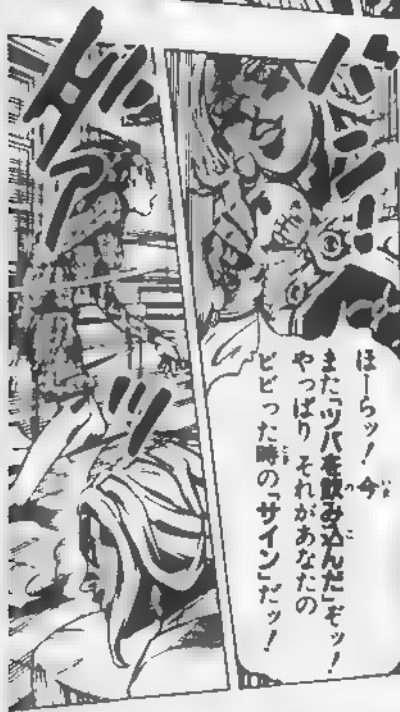 バン!
ほーらッ! 今
また「ツバを飲み込んだ」ぞッ!
やっぱり それがあなたの
ビビった時の「サイン」だッ!